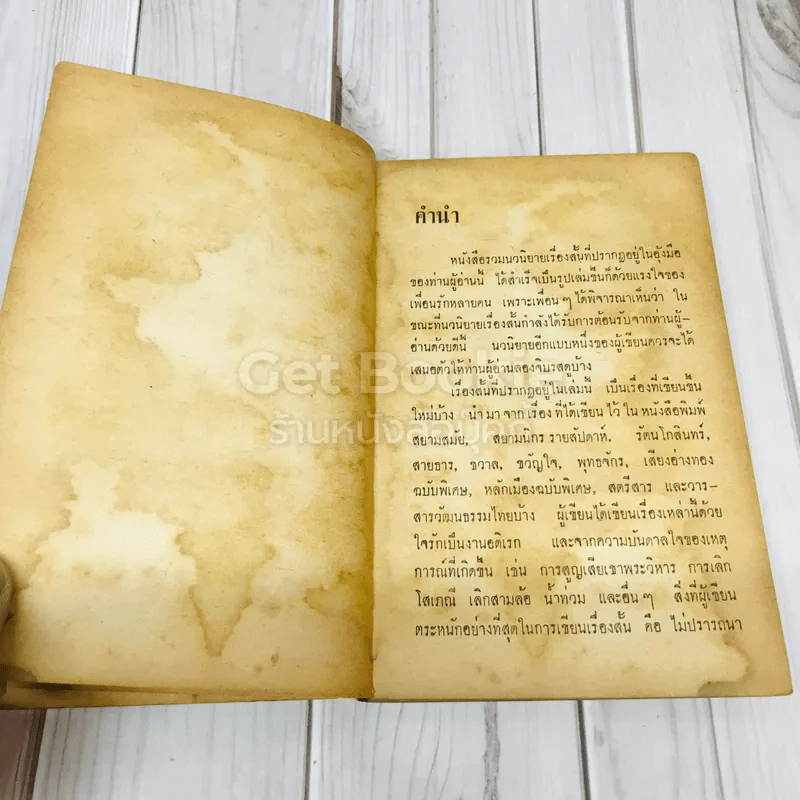 คำนำ
หนังสือรวมนวนิยายเรื่องสั้นที่ปรากฏอยู่ในอุ้งมือ
ของท่านผู้อ่านนี้ ได้สำเร็จเป็นรูปเล่มขึ้นก็ด้วยแรงใจของ
เพื่อนรักหลายคน เพราะเพื่อน ๆ ได้พิจารณาเห็นว่า ใน
ขณะที่นวนิยายเรื่องสั้นกำลังได้รับการต้อนรับจากท่านผู้–
อ่านด้วยดีนี้ นวนิยายอีกแบบหนึ่งของผู้เขียนควรจะได้
เสนอตัวให้ท่านผู้อ่านลองจิบรสดูบ้าง
Get Bookie
เรื่องสั้นที่ปรากฏอยู่ในเล่มนี้ เป็นเรื่องที่เขียนขึ้น
ใหม่บ้าง นำมาจากเรื่องที่ได้เขียนไว้ในหนังสือพิมพ์
ร้านหนังสือบุ๊คกี้
สยามสมัย, สยามนิกรรายสัปดาห์. รัตนโกสินทร์,
สายธาร, ชวาล, ขวัญใจ, พุทธจักร, เสียงอ่างทอง
ฉบับพิเศษ, หลักเมืองฉบับพิเศษ, สตรีสาร และวาร–
สารวัฒนธรรมไทยบ้าง ผู้เขียนได้เขียนเรื่องเหล่านี้ด้วย
ใจรักเป็นงานอดิเรก และจากความบันดาลใจของเหตุ
การณ์ที่เกิดขึ้น เช่น การสูญเสียเขาพระวิหาร การเลิก
โสเภณี เลิกสามล้อ น้ำท่วม และอื่น ๆ สิ่งที่ผู้เขียน
ตระหนักอย่างที่สุดในการเขียนเรื่องสั้น คือ ไม่ปรารถนา